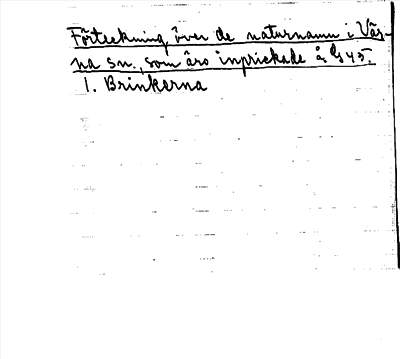 Förteckning över de naturnamn i Väs-
na sn., som äro inprickade å G 45.
1. Brinkarna